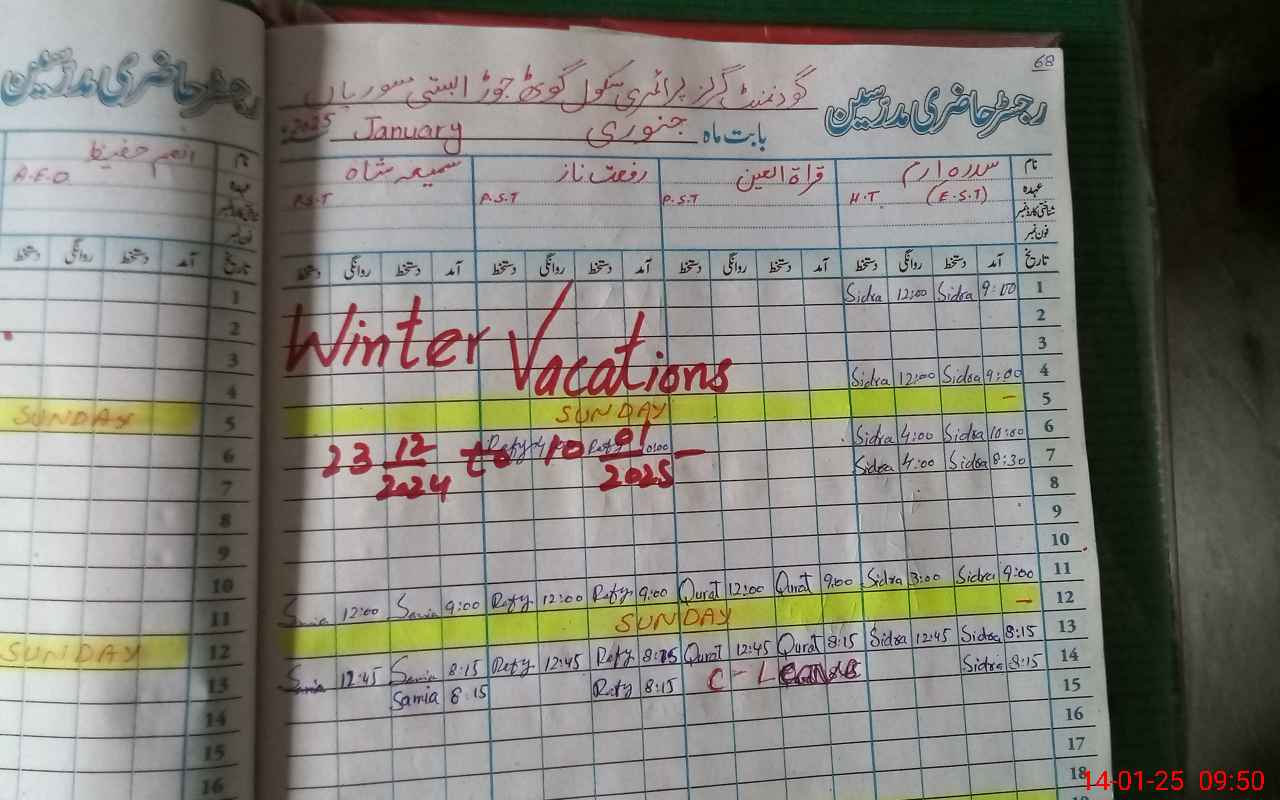 68
رجسٹر حاضری مدرسین
گورنمنٹ گرلز پرائمری سکول گوٹھ جوڑ
بابت ماہ جنوری January 2025
نام سدرہ ارم قراۃ العین رفعت ناز سمیعہ شاہ
عہدہ H.T (E.S.T) P.S.T P.S.T P.S.T
شناختی کارڈ نمبر
فون نمبر
تاریخ آمد دستخط روانگی دستخط آمد دستخط روانگی دستخط آمد دستخط روانگی دستخط آمد دستخط روانگی دستخط
Sidra 12:00 Sidra 9:00 1
2
Winter Vacations
3
Sidra 12:00 Sidra 9:00 4
SUNDAY 5
Refy Refy 10:00 Sidra 4:00 Sidra 10:00 6
23 12/2024 to 10 01/2025
Sidra 4:00 Sidra 8:30 7
8
9
10
Samia 12:00 Samia 9:00 Refy 12:00 Refy 9:00 Qurat 12:00 Qurat 9:00 Sidra 3:00 Sidra 9:00 11
SUNDAY 12
Samia 12:45 Samia 8:15 Refy 12:45 Refy 8:15 Qurat 12:45 Qurat 8:15 Sidra 12:45 Sidra 8:15 13
Samia 8:15 Refy 8:15 C-L Sidra 8:15 14
15
16
17
18
رجسٹر حاضری مدرسین
نام انعم حفیظ
عہدہ A.E.O
فون نمبر
تاریخ آمد دستخط روانگی دستخط
1
2
3
4
SUNDAY 5
6
7
8
9
10
11
SUNDAY 12
13
14
15
16
14-01-25 09:50